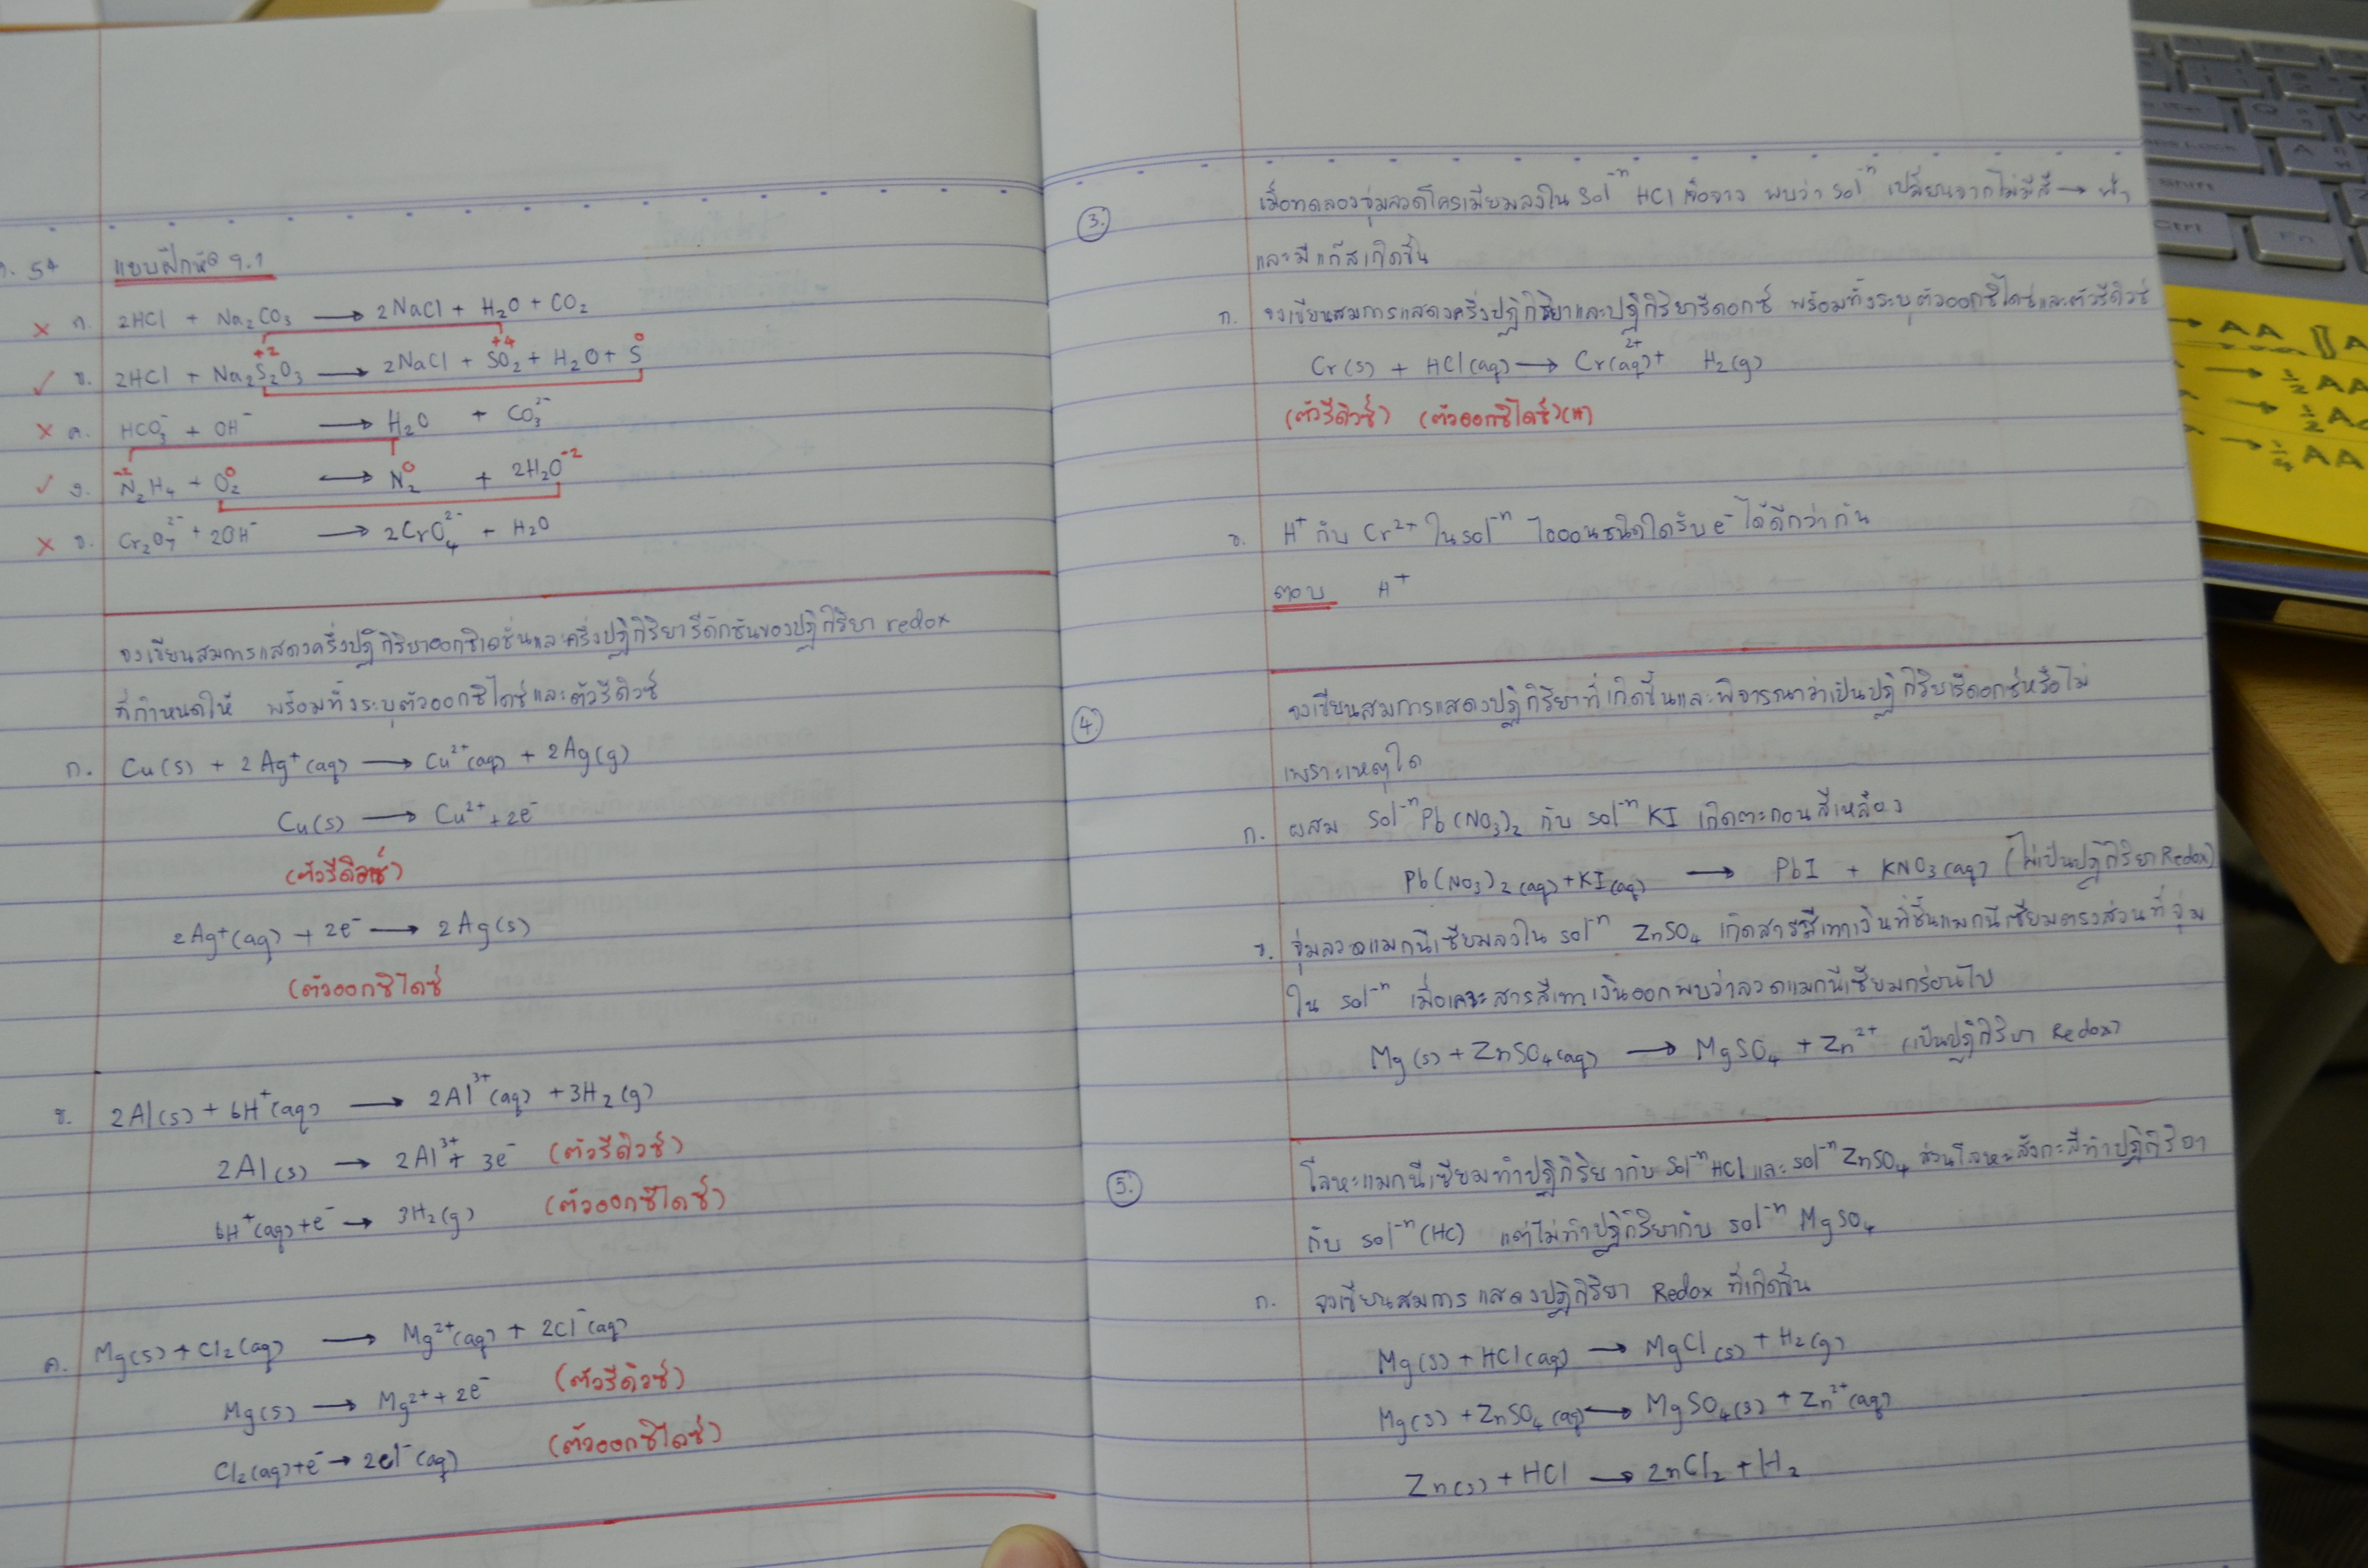 54 แบบฝึกหัด 9.1
× ก. 2HCl + Na₂CO₃ ⟶ 2NaCl + H₂O + CO₂
+2 +4 0
✓ ข. 2HCl + Na₂S₂O₃ ⟶ 2NaCl + SO₂ + H₂O + S
× ค. HCO₃⁻ + OH⁻ ⟶ H₂O + CO₃²⁻
-2 0 0 -2
✓ ง. N₂H₄ + O₂ ⟷ N₂ + 2H₂O
× จ. Cr₂O₇²⁻ + 2OH⁻ ⟶ 2CrO₄²⁻ + H₂O
จงเขียนสมการแสดงครึ่งปฏิกิริยาออกซิเดชันและครึ่งปฏิกิริยารีดักชันของปฏิกิริยา redox
ที่กำหนดให้ พร้อมทั้งระบุตัวออกซิไดซ์และตัวรีดิวซ์
ก. Cu(s) + 2Ag⁺(aq) ⟶ Cu²⁺(aq) + 2Ag(g)
Cu(s) ⟶ Cu²⁺ + 2e⁻
(ตัวรีดิวซ์)
2Ag⁺(aq) + 2e⁻ ⟶ 2Ag(s)
(ตัวออกซิไดซ์
ข. 2Al(s) + 6H⁺(aq) ⟶ 2Al³⁺(aq) + 3H₂(g)
2Al(s) ⟶ 2Al³⁺ + 3e⁻ (ตัวรีดิวซ์)
6H⁺(aq) + e⁻ ⟶ 3H₂(g) (ตัวออกซิไดซ์)
ค. Mg(s) + Cl₂(aq) ⟶ Mg²⁺(aq) + 2Cl⁻(aq)
Mg(s) ⟶ Mg²⁺ + 2e⁻ (ตัวรีดิวซ์)
Cl₂(aq) + e⁻ → 2Cl⁻(aq) (ตัวออกซิไดซ์)
3. เมื่อทดลองจุ่มลวดโครเมียมลงใน Sol⁻ⁿ HCl เจือจาง พบว่า Sol⁻ⁿ เปลี่ยนจากไม่มีสี → ฟ้า
และมีแก๊สเกิดขึ้น
ก. จงเขียนสมการแสดงครึ่งปฏิกิริยาและปฏิกิริยารีดอกซ์ พร้อมทั้งระบุตัวออกซิไดซ์และตัวรีดิวซ์
Cr(s) + HCl(aq) ⟶ Cr²⁺(aq) + H₂(g)
(ตัวรีดิวซ์) (ตัวออกซิไดซ์)(H)
ข. H⁺ กับ Cr²⁺ ในsol⁻ⁿ ไอออนชนิดใดรับ e⁻ ได้ดีกว่ากัน
ตอบ H⁺
4 จงเขียนสมการแสดงปฏิกิริยาที่เกิดขึ้นและพิจารณาว่าเป็นปฏิกิริยารีดอกซ์หรือไม่
เพราะเหตุใด
ก. ผสม Sol⁻ⁿ Pb(NO₃)₂ กับ Sol⁻ⁿ KI เกิดตะกอนสีเหลือง
Pb(NO₃)₂(aq) + KI(aq) ⟶ PbI + KNO₃(aq) (ไม่เป็นปฏิกิริยาRedox)
ข. จุ่มลวดแมกนีเซียมลงใน sol⁻ⁿ ZnSO₄ เกิดสารสีเทาเงินที่ชิ้นแมกนีเซียมตรงส่วนที่จุ่ม
ใน sol⁻ⁿ เมื่อเคาะสารสีเทาเงินออกพบว่าลวดแมกนีเซียมกร่อนไป
Mg(s) + ZnSO₄(aq) ⟶ MgSO₄ + Zn²⁺ (เป็นปฏิกิริยา Redox)
5. โลหะแมกนีเซียมทำปฏิกิริยากับ Sol⁻ⁿ HCl และ sol⁻ⁿ ZnSO₄ ส่วนโลหะสังกะสีทำปฏิกิริยา
กับ sol⁻ⁿ (HCl) แต่ไม่ทำปฏิกิริยากับ sol⁻ⁿ MgSO₄
ก. จงเขียนสมการ แสดงปฏิกิริยา Redox ที่เกิดขึ้น
Mg(s) + HCl(aq) ⟶ MgCl(s) + H₂(g)
Mg(s) + ZnSO₄(aq) ⟶ MgSO₄(s) + Zn²⁺(aq)
Zn(s) + HCl ⟶ ZnCl₂ + H₂
→ AA
→ ½ AA
→ ½ A
→ ¼ AA
Shift
Ctrl
Fn